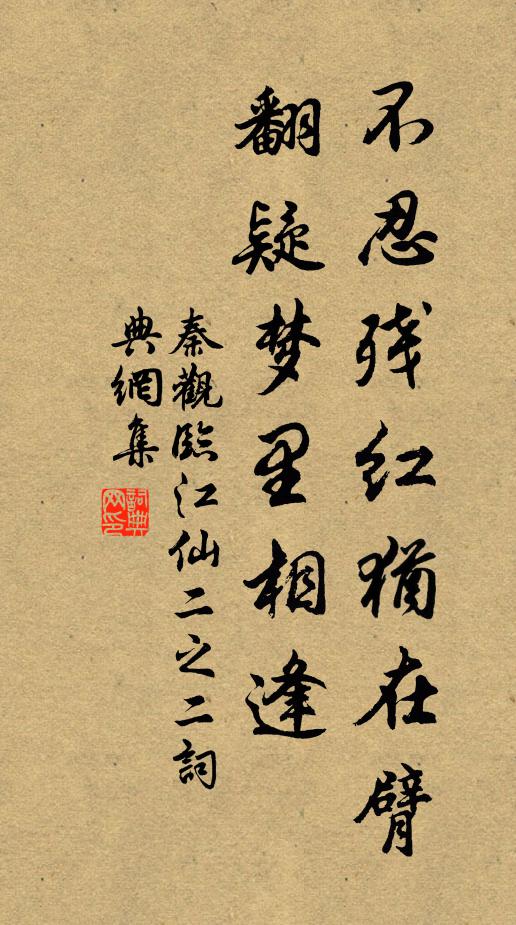 不忍残红犹在臂
翻疑梦里相逢
秦觀臨江仙二之二詞
典網集
詞典網印